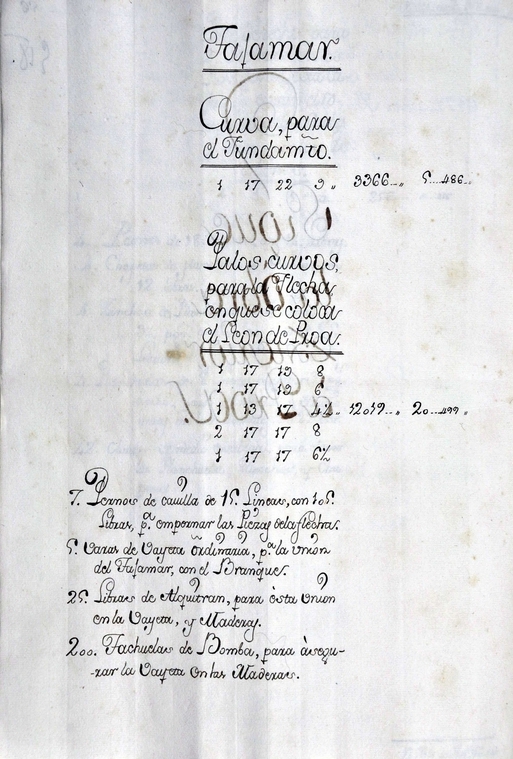 Tajamar.
Curva, para
el Fundamto.
1 17 22 9 „ 3366..„ 5...486..
Palos, curvos,
para la Flecha
en que se coloca
el Leon de Proa.
1 17 19 8
1 17 19 6
1 13 17 4½ „ 12019..„ 20...499..
2 17 17 8
1 17 17 6½
7. Pernos de cavilla de 15. Lineas, con 105.
Libras, pa. empernar las Piezas dela flecha.
5. Varas de Vayeta òrdinaria, pa. la Vnion
del Tajamar, con el Branque.
25. Libras de Alquitran, para èsta Vnion
en la Vayeta, y Maderas.
200. Tachuelas de Bomba, para àsegu-
-rar la Vayeta en las Maderas.